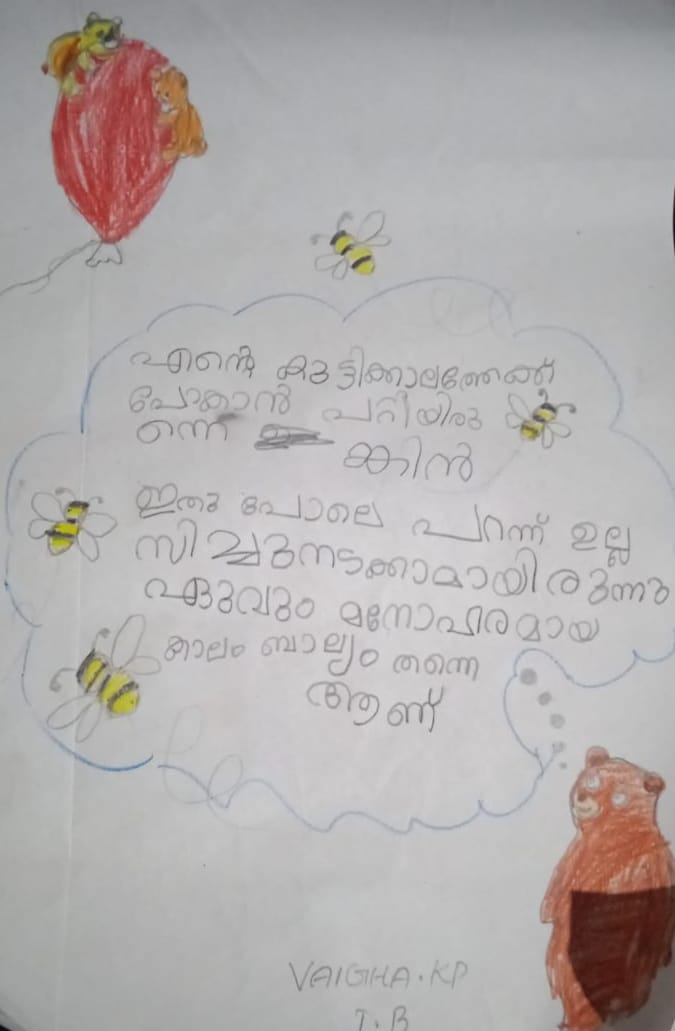 എന്റെ കുട്ടിക്കാലത്തേക്ക്
പോകാൻ പറ്റിയിരു
ന്നെ
ങ്കിൽ
ഇതു പോലെ പറന്ന് ഉല്ല
സിച്ചുനടക്കാമായിരുന്നു
ഏറ്റവും മനോഹരമായ
കാലം ബാല്യം തന്നെ
ആണ്
VAIGHA.KP